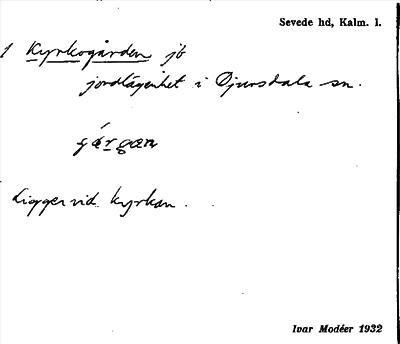 Sevede hd, Kalm. l.
1 Kyrkogården jb
jordlägenhet i Djursdala sn.
Ligger vid kyrkan.
Ivar Modéer 1932